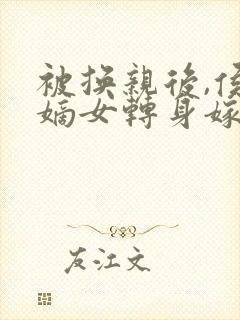 被換親後,侯
嫡女轉身嫁
友江文